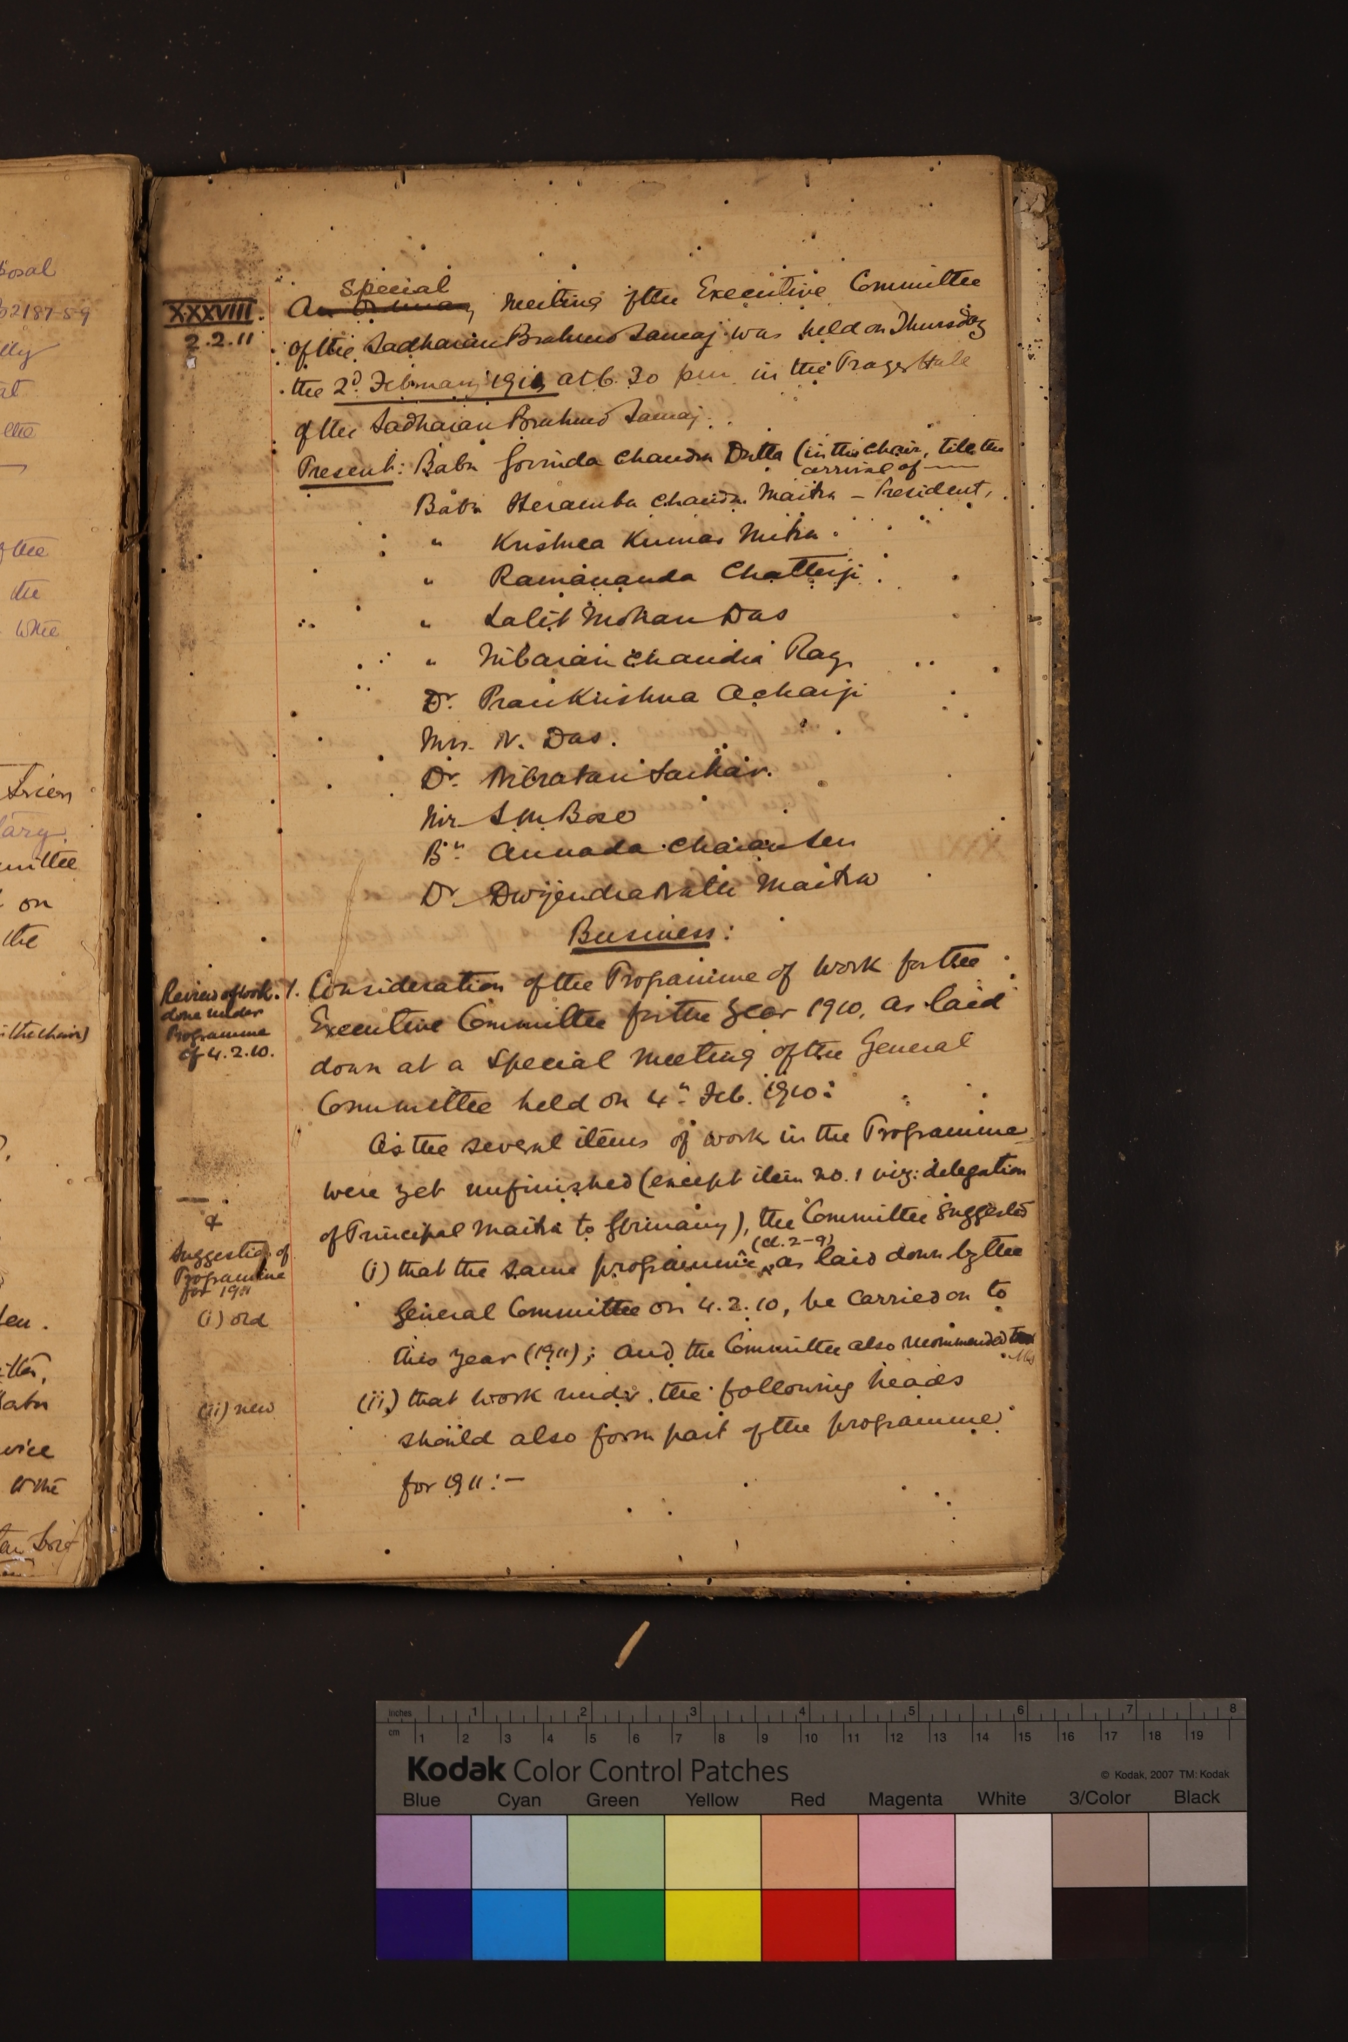 XXXVIII.
2.2.11
Special
A meeting of the Executive Committee
of the Sadharan Brahmo Samaj was held on Thursday
the 2d February 1911 at 6.30 pm in the Prayer Hall
of the Sadharan Brahmo Samaj.
Present: Babu Govinda Chandra Dutta (in the chair, till the
arrival of ——
Babu Heramba Chandra Maitra – President,
" Krishna Kumar Mitra.
" Ramananda Chatterji
" Lalit Mohan Das
" Nibaran Chandra Ray
Dr. Prankrishna Acharji
Mrs. N. Das.
Dr. Nilratan Sarkar.
Mr S M Bose
Bu Annada Charan Sen
Dr. Dwijendra Nath Maitra
Business:
Review of work
done under
Programme
of 4.2.10.
1. Consideration of the Programme of work for the
Executive Committee for the year 1910, as laid
down at a special meeting of the General
Committee held on 4th Feb. 1910:
As the several items of work in the Programme
were yet unfinished (except item no. 1 viz: delegation
of Principal Maitra to Germany), the Committee suggested
&
Suggestion of
Programme
for 1911
(i) old
(cl. 2–9)
(i) that the same programme as laid down by the
General Committee on 4.2.10, be carried on to
this year (1911); and the Committee also recommended
(ii) new
(ii) that work under the following heads
should also form part of the programme
for 1911:–
posal
02187-5-9
lly
at
the
of the
the
while
mittee
on
the
in the chair)
vice
to the
Inches 1 2 3 4 5 6 7 8
cm 1 2 3 4 5 6 7 8 9 10 11 12 13 14 15 16 17 18 19
Kodak Color Control Patches
© Kodak, 2007 TM: Kodak
Blue Cyan Green Yellow Red Magenta White 3/Color Black